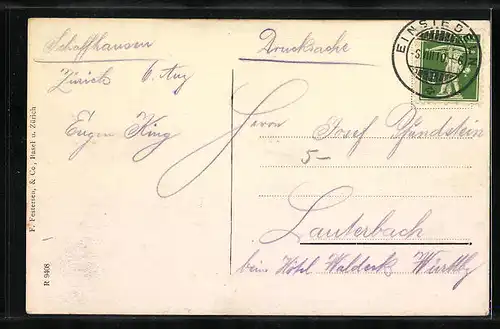 Schaffhausen
Drucksache
EINSIEDELN
Zürich 6. Aug
Eugen King
Herrn Josef Pfundstein
5-
Lauterbach
beim Hôtel Waldeck Württbg
F. Festersen, & Co., Basel u. Zürich
R 9408